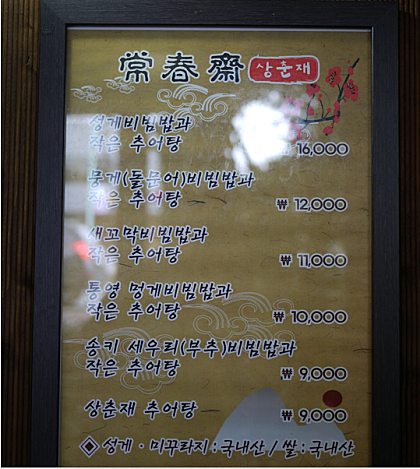 常春齋 상춘재
성게비빔밥과
작은 추어탕 ₩ 16,000
뭉게(돌문어)비빔밥과
작은 추어탕 ₩ 12,000
새꼬막비빔밥과
작은 추어탕 ₩ 11,000
통영 멍게비빔밥과
작은 추어탕 ₩ 10,000
송키 세우리(부추)비빔밥과
작은 추어탕 ₩ 9,000
상춘재 추어탕 ₩ 9,000
◈ 성게 · 미꾸라지 : 국내산 / 쌀 : 국내산